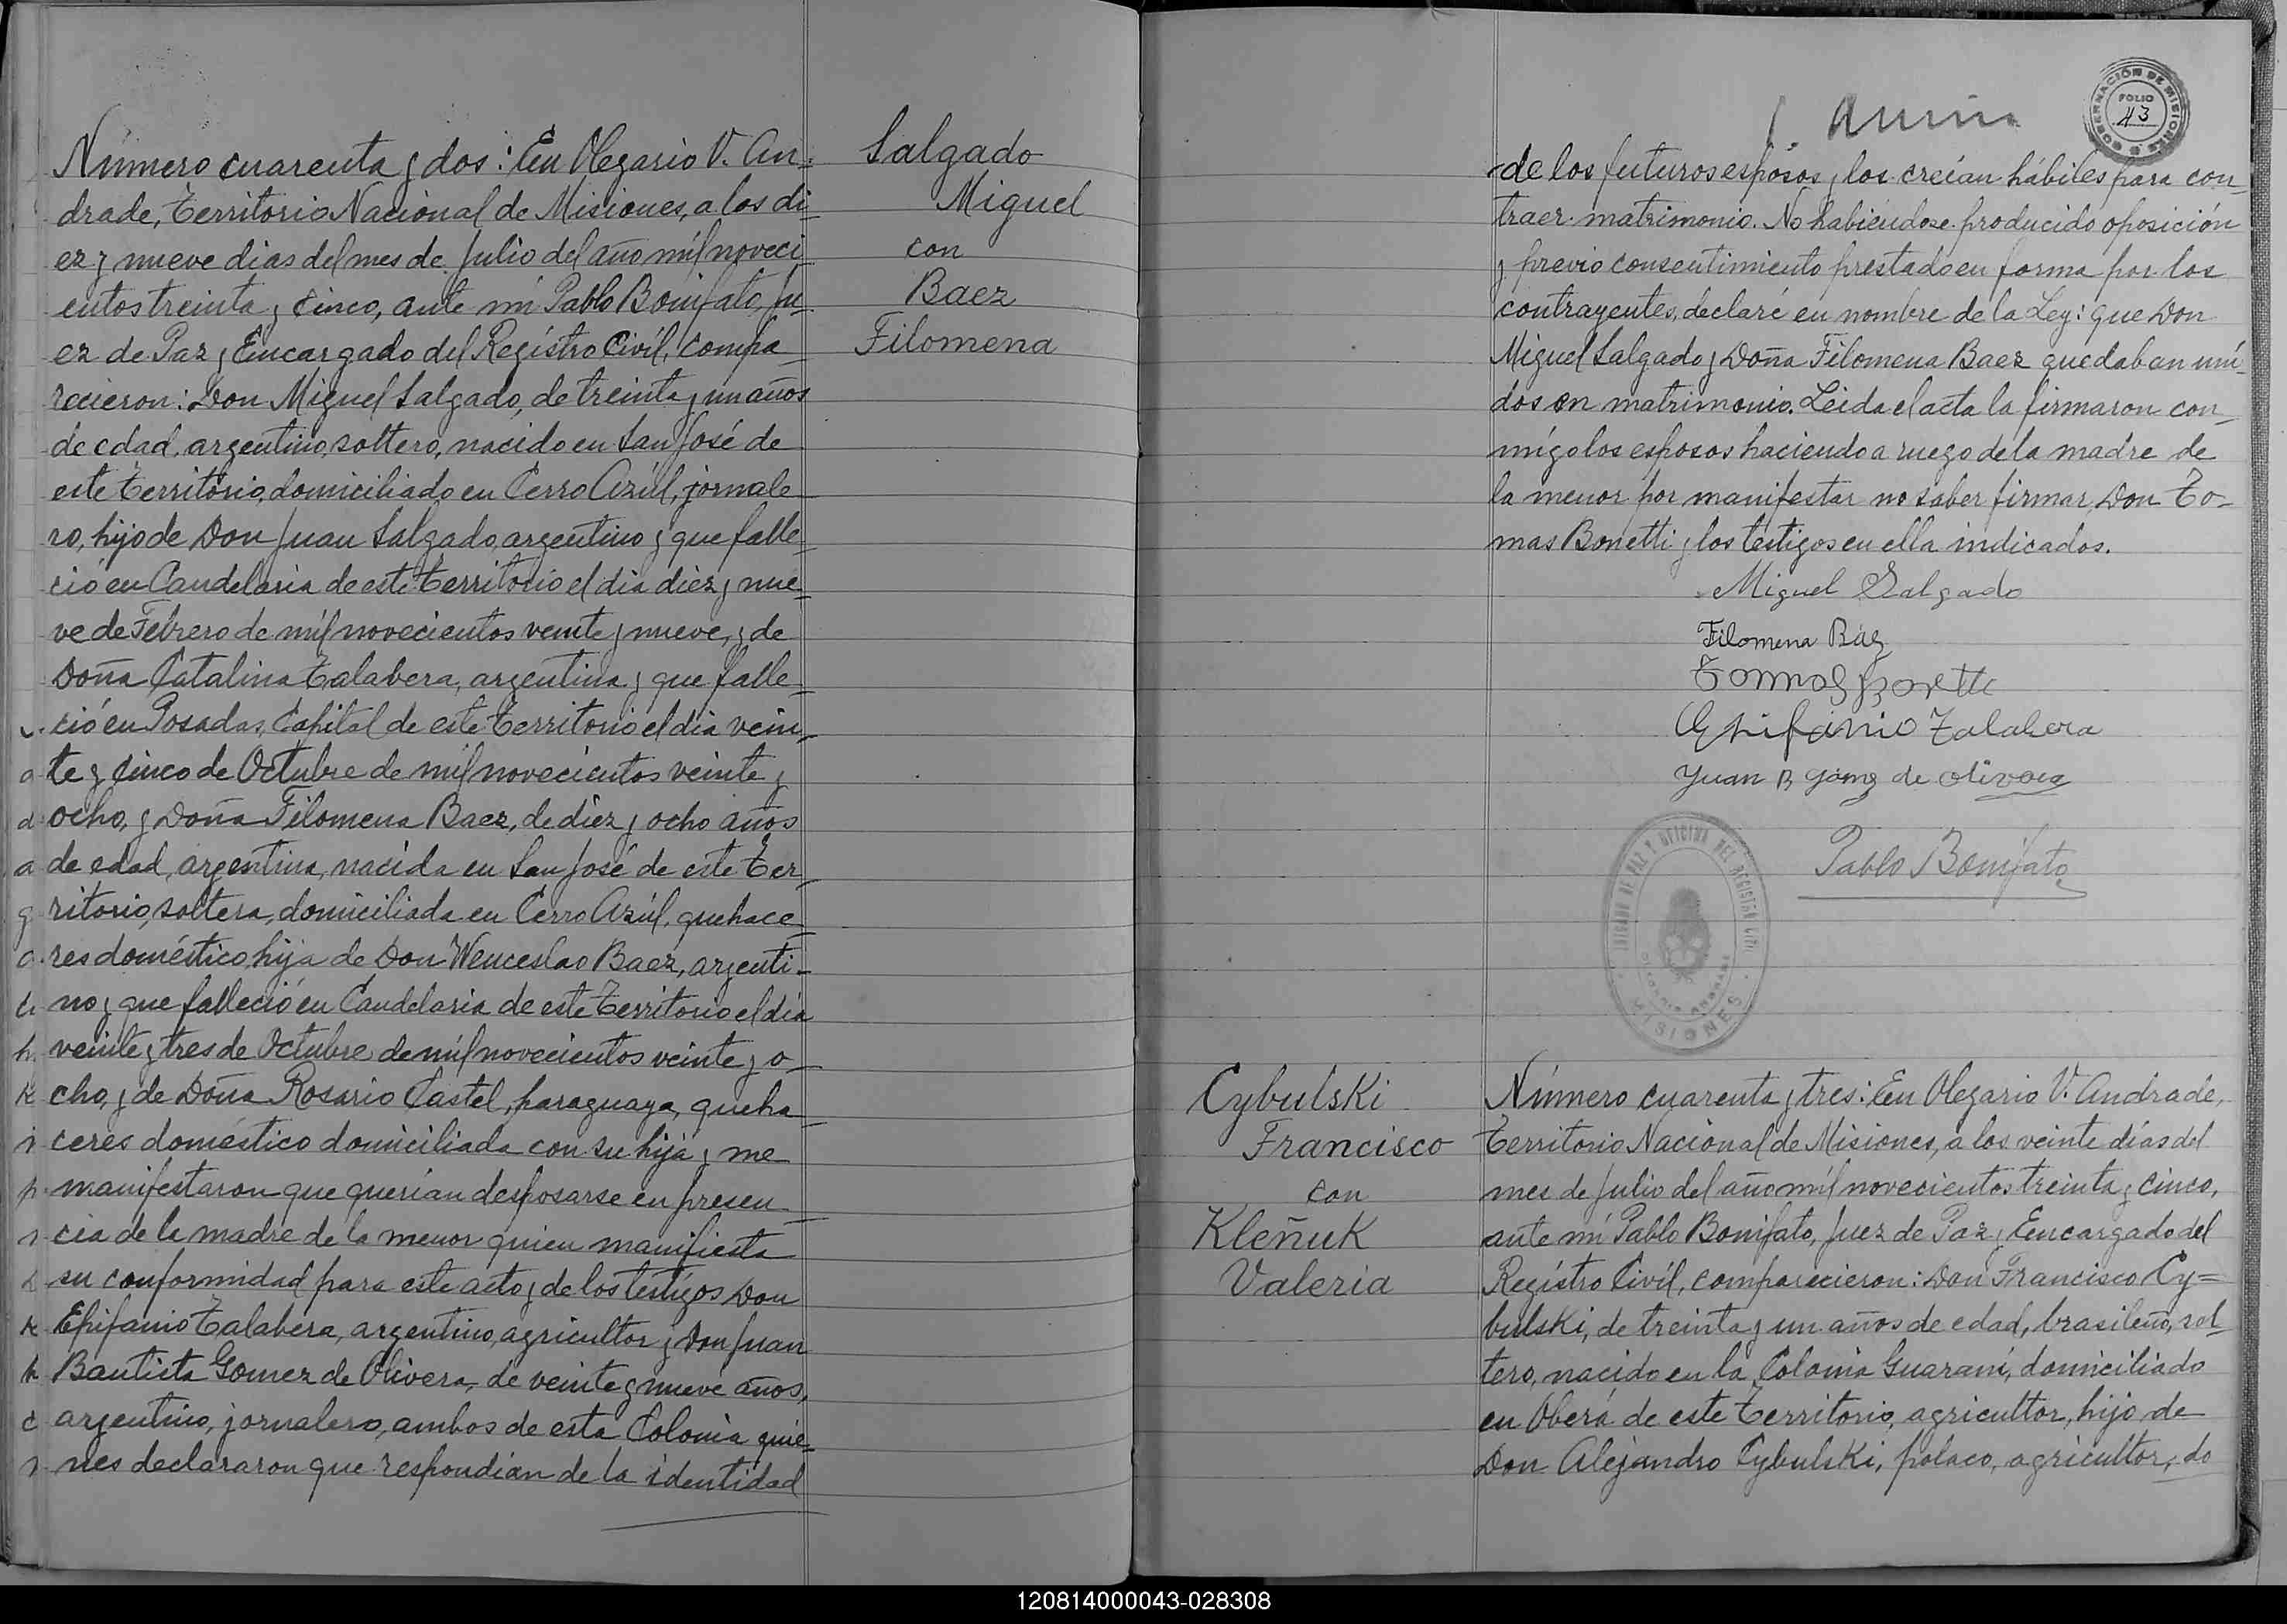 Número cuarenta y dos: En Olegario V. An-
drade, Territorio Nacional de Misiones, a los di-
ez y nueve dias del mes de Julio del año mil noveci-
entos treinta y cinco, ante mi Pablo Bonifato, Ju-
ez de Paz y Encargado del Registro Civil, compa-
recieron: Don Miguel Salgado, de treinta y un años
de edad, argentino, soltero, nacido en San José de
este Territorio, domiciliado en Cerro Azúl, jornale-
ro, hijo de Don Juan Salgado, argentino y que falle-
ció en Candelaria de este Territorio el dia diez y nue-
ve de Febrero de mil novecientos veinte y nueve, y de
Doña Catalina Talabera, argentina y que falle-
ció en Posadas, Capital de este Territorio el dia vein-
te y cinco de Octubre de mil novecientos veinte y
ocho, y Doña Filomena Baez, de diez y ocho años
de edad, argentina, nacida en San José de este Ter-
ritorio, soltera, domiciliada en Cerro Azúl, quehace-
res doméstico, hija de Don Wenceslao Baez, argenti-
no y que falleció en Candelaria de este Territorio el día
veinte y tres de Octubre de mil novecientos veinte y o-
cho, y de Doña Rosario Castel, paraguaya, queha-
ceres doméstico domiciliada con su hija y me
manifestaron que querian desposarse en presen-
cia de la madre de la menor quien manifiesta
su conformidad para este acto y de los testigos Don
Epifanio Talabera, argentino, agricultor y Don Juan
Bautista Gomez de Olivera, de veinte y nueve años,
argentino, jornalero, ambos de esta Colonia quie-
nes declararon que respondian de la identidad
Salgado
Miguel
con
Baez
Filomena
GOBERNACIÓN DE MISIONES
FOLIO
43
de los futuros esposos y los creían hábiles para con-
traer matrimonio. No habiéndose producido oposición
y previo consentimiento prestado en forma por los
contrayentes, declaré en nombre de la Ley: que Don
Miguel Salgado y Doña Filomena Baez quedaban uni-
dos en matrimonio. Leida el acta la firmaron con-
migo los esposos haciendo a ruego de la madre de
la menor por manifestar no saber firmar, Don To-
mas Bonetti y los testigos en ella indicados.
Miguel Salgado
Filomena Báz
Epifanio Talabera
Juan B Gomz de olivera
Pablo Bonifato
JUZGADO DE PAZ Y OFICINA DEL REGISTRO CIVIL
OLEGARIO ANDRADE
MISIONES
Cybulski
Francisco
con
Kleñuk
Valeria
Número cuarenta y tres: En Olegario V. Andrade,
Territorio Nacional de Misiones, a los veinte días del
mes de Julio del año mil novecientos treinta y cinco,
ante mi Pablo Bonifato, Juez de Paz y Encargado del
Registro Civil, comparecieron: Don Francisco Cy=
bulski, de treinta y un años de edad, brasileño, sol-
tero, nacido en la Colonia Guaraní, domiciliado
en Oberá de este Territorio, agricultor, hijo de
Don Alejandro Cybulski, polaco, agricultor, do
120814000043-028308